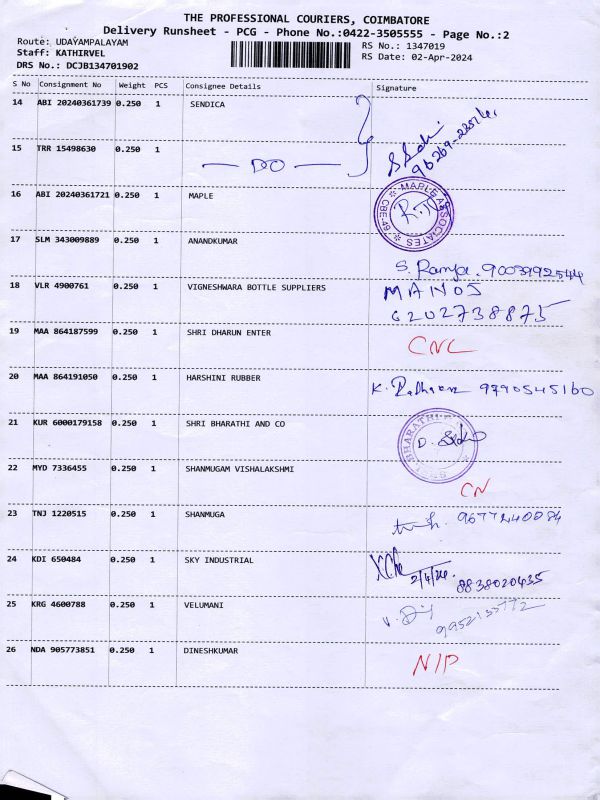 THE PROFESSIONAL COURIERS, COIMBATORE
Delivery Runsheet - PCG - Phone No.:0422-3505555 - Page No.:2
Route: UDAYAMPALAYAM RS No.: 1347019
Staff: KATHIRVEL RS Date: 02-Apr-2024
DRS No.: DCJB134701902
S No Consignment No Weight PCS Consignee Details Signature
14 ABI 20240361739 0.250 1 SENDICA
15 TRR 15498630 0.250 1
DO
16 ABI 20240361721 0.250 1 MAPLE
MAPLE ASSOCIATES CBE-
17 SLM 343009889 0.250 1 ANANDKUMAR
S. Ramya. 9003992544
18 VLR 4900761 0.250 1 VIGNESHWARA BOTTLE SUPPLIERS MANOJ
6202738875
19 MAA 864187599 0.250 1 SHRI DHARUN ENTER CNL
20 MAA 864191050 0.250 1 HARSHINI RUBBER K. 9790545160
21 KUR 6000179158 0.250 1 SHRI BHARATHI AND CO
BHARATHI
D.
22 MYD 7336455 0.250 1 SHANMUGAM VISHALAKSHMI CN
23 TNJ 1220515 0.250 1 SHANMUGA 9677240084
24 KDI 650484 0.250 1 SKY INDUSTRIAL 2/4/24.
8838020435
25 KRG 4600788 0.250 1 VELUMANI
9952133772
26 NDA 905773851 0.250 1 DINESHKUMAR N/P